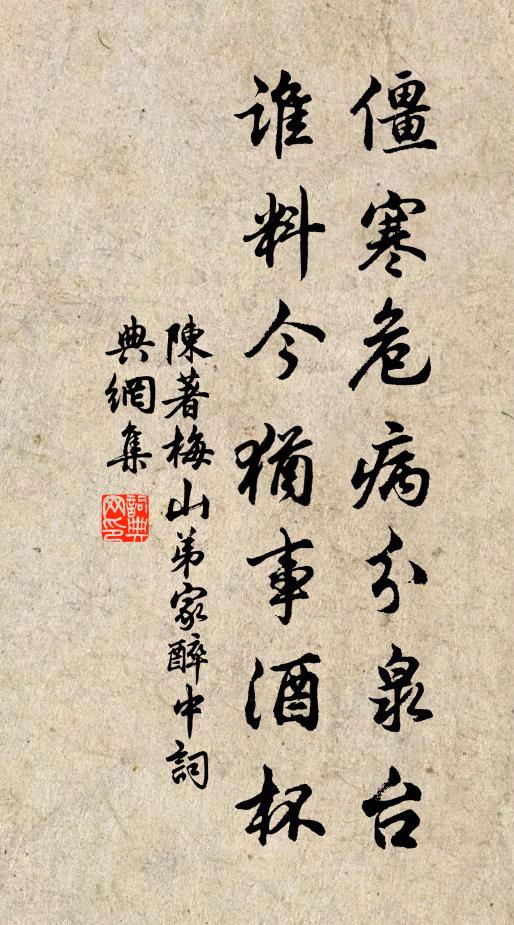 僵寒危病分泉台
谁料今犹事酒杯
陳著梅山弟家醉中詞
典網集
詞典网印